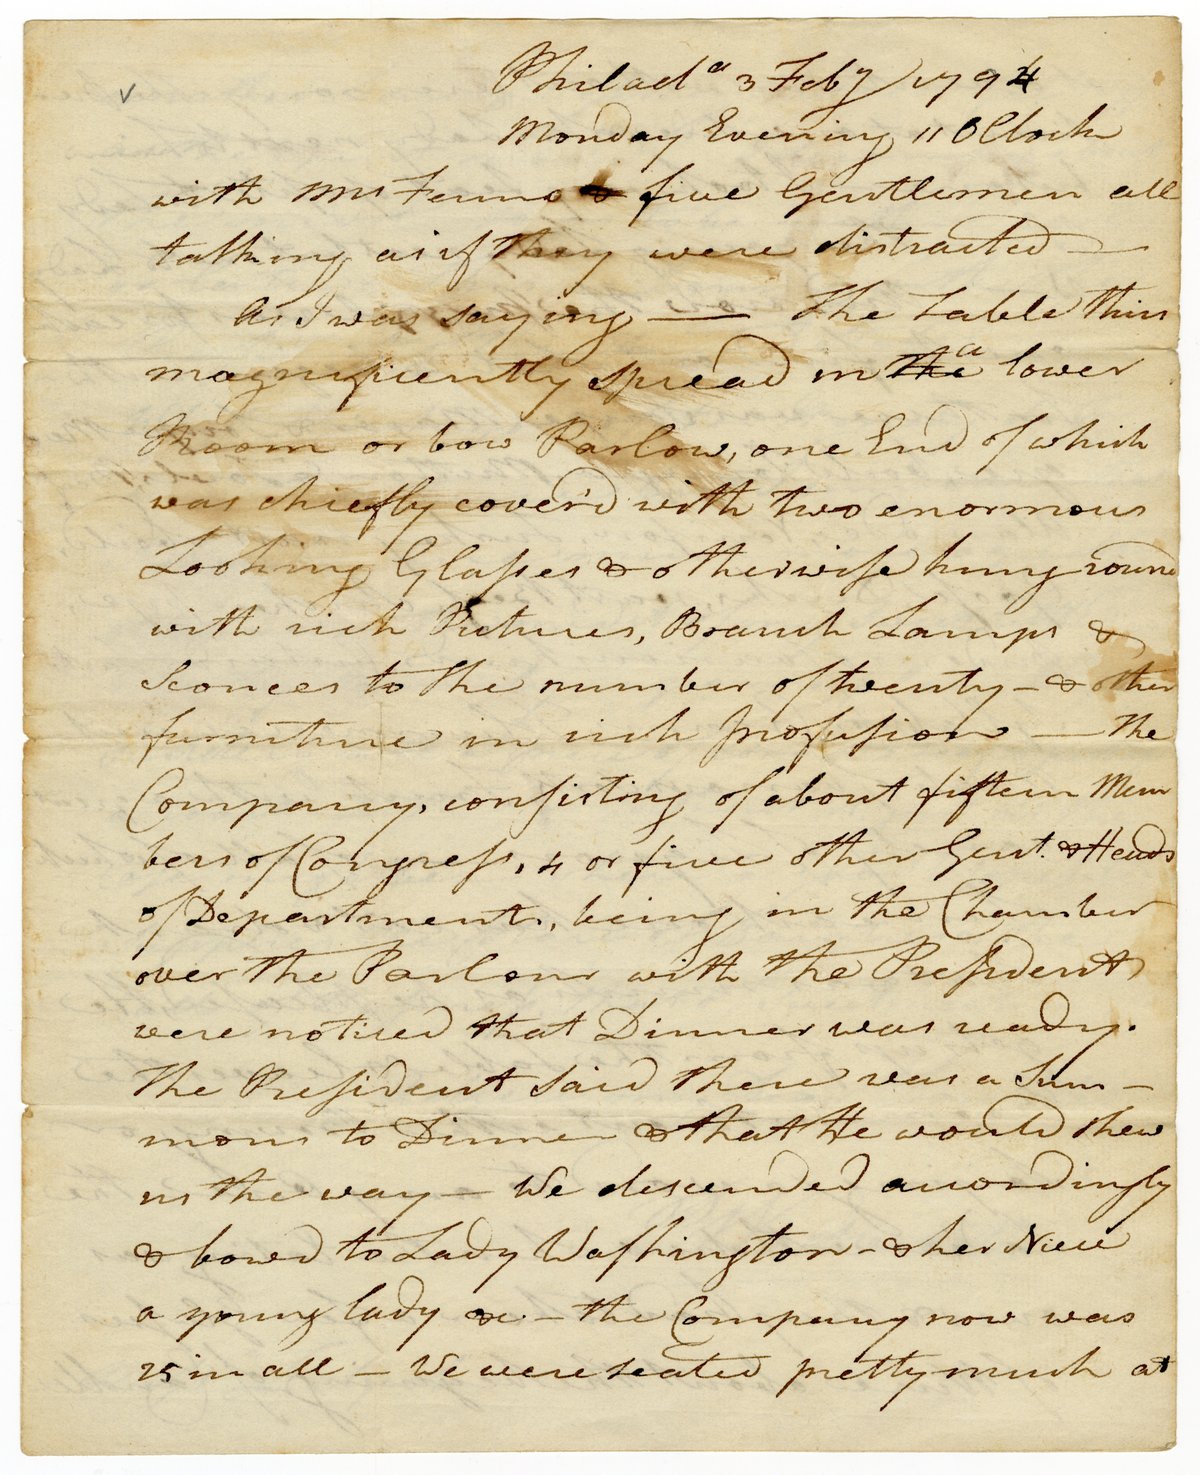 Philada 3 Feby 1794
Monday Evening 11 OClock
with Mrs Fenno & five Gentlemen all
talking as if they were distracted —
As I was saying — The Table thus
magnificently spread in the a lower
Room or bow Parlow, one End of which
was chiefly cover'd with two enormous
Looking Glasses & otherwise hung round
with rich Pictures, Branch Lamps &
Sconces to the number of twenty — & other
furniture in rich profusion — The
Company, consisting of about fifteen Mem
bers of Congress, 4 or five other Gent. & Heads
of Department, being in the Chamber
over the Parlour with the President
were noticed that Dinner was ready.
The President said there was a Sum —
mons to Dinner & that He would shew
us the way — We descended accordingly
& bowed to Lady Washington — & her Niece
a young lady &c. — the Company now was
25 in all — We were seated pretty much at